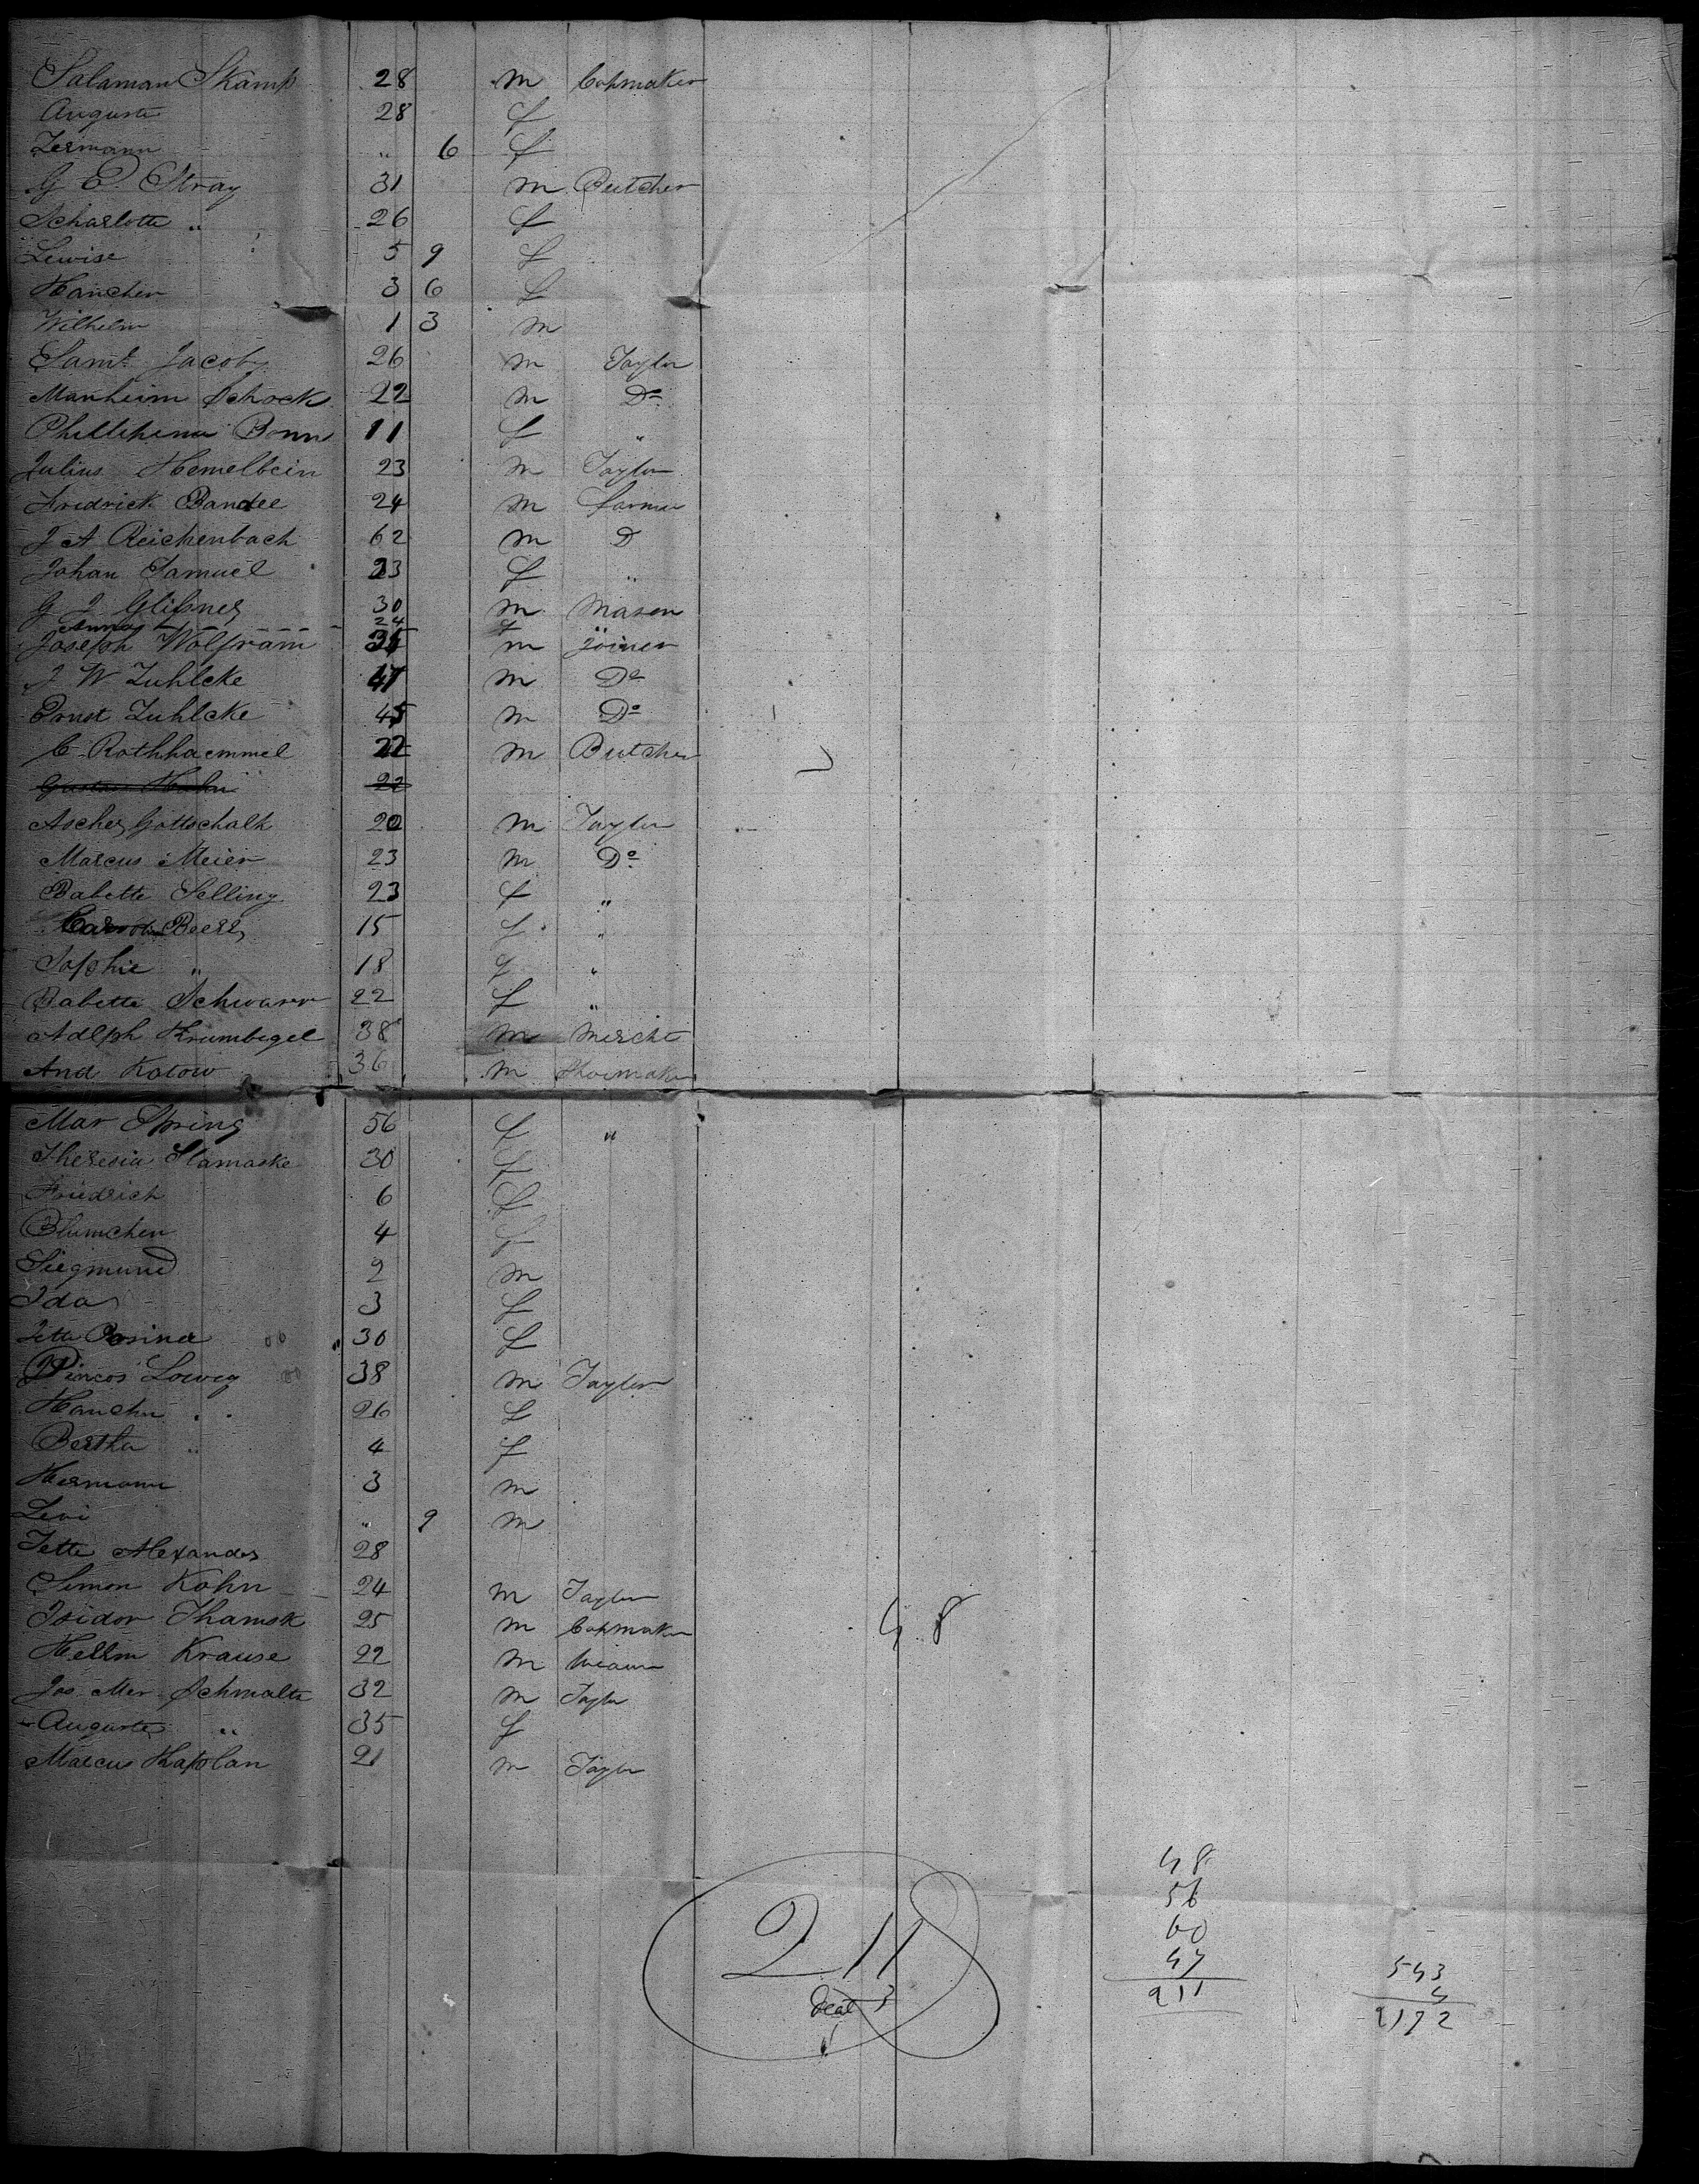 Salaman Skamp 28 m Capmaker
Auguste 28 f
Zermann " 6 f
G E Stray 31 m Butcher
Scharlotte " 26 f
Lewise 5 9 f
Hanchen 3 6 f
Wilhelm 1 3 m
Saml Jacoby 26 m Taylor
Manheim Schock 22 m Do
Phillipena Bonn 11 f "
Julius Hemelbein 23 m Taylor
Fredrick Bandel 24 m farmer
J A Reichenbach 62 m D
Johan Samuel 23 f "
G J Glibner 30 m Mason
Anna 24 f "
Joseph Wolfram 35 m Joiner
J W Zuhlcke 47 m Do
Ernst Zuhlcke 45 m Do
C Rothhaemmel 22 m Butcher
Gustav Hahn 22
Ascher Gottschalk 20 m Taylor
Marcus Meier 23 m Do
Babette Selling 23 f "
Beerl 15 f "
Sophie " 18 f "
Babette Schwarr 22 f "
Adlph Krumbegel 38 m Mercht
And Katow 36 m Shoemaker
Mar Spring 56 f "
Theresia Slamaske 30 f
Friedrich 6 f
Blumchen 4 f
Siegmund 2 m
Ida 3 f
Jette Posiner " 30 f
Pincos Loevey 38 m Taylor
Hanchn " 26 f
Bertha " 4 f
Hermann 3 m
Levi " 9 m
Jette Alexander 28
Simon Kohn 24 m Taylor
Isidor Thamsk 25 m Capmaker
Hellm Krause 22 m
48
Jos. Mer Schmalte 32 m Taylor
Auguste " 35 f
Marcus Kaplan 21 m Taylor
48
56
60
47
211
211
deat 3
543
4
2172